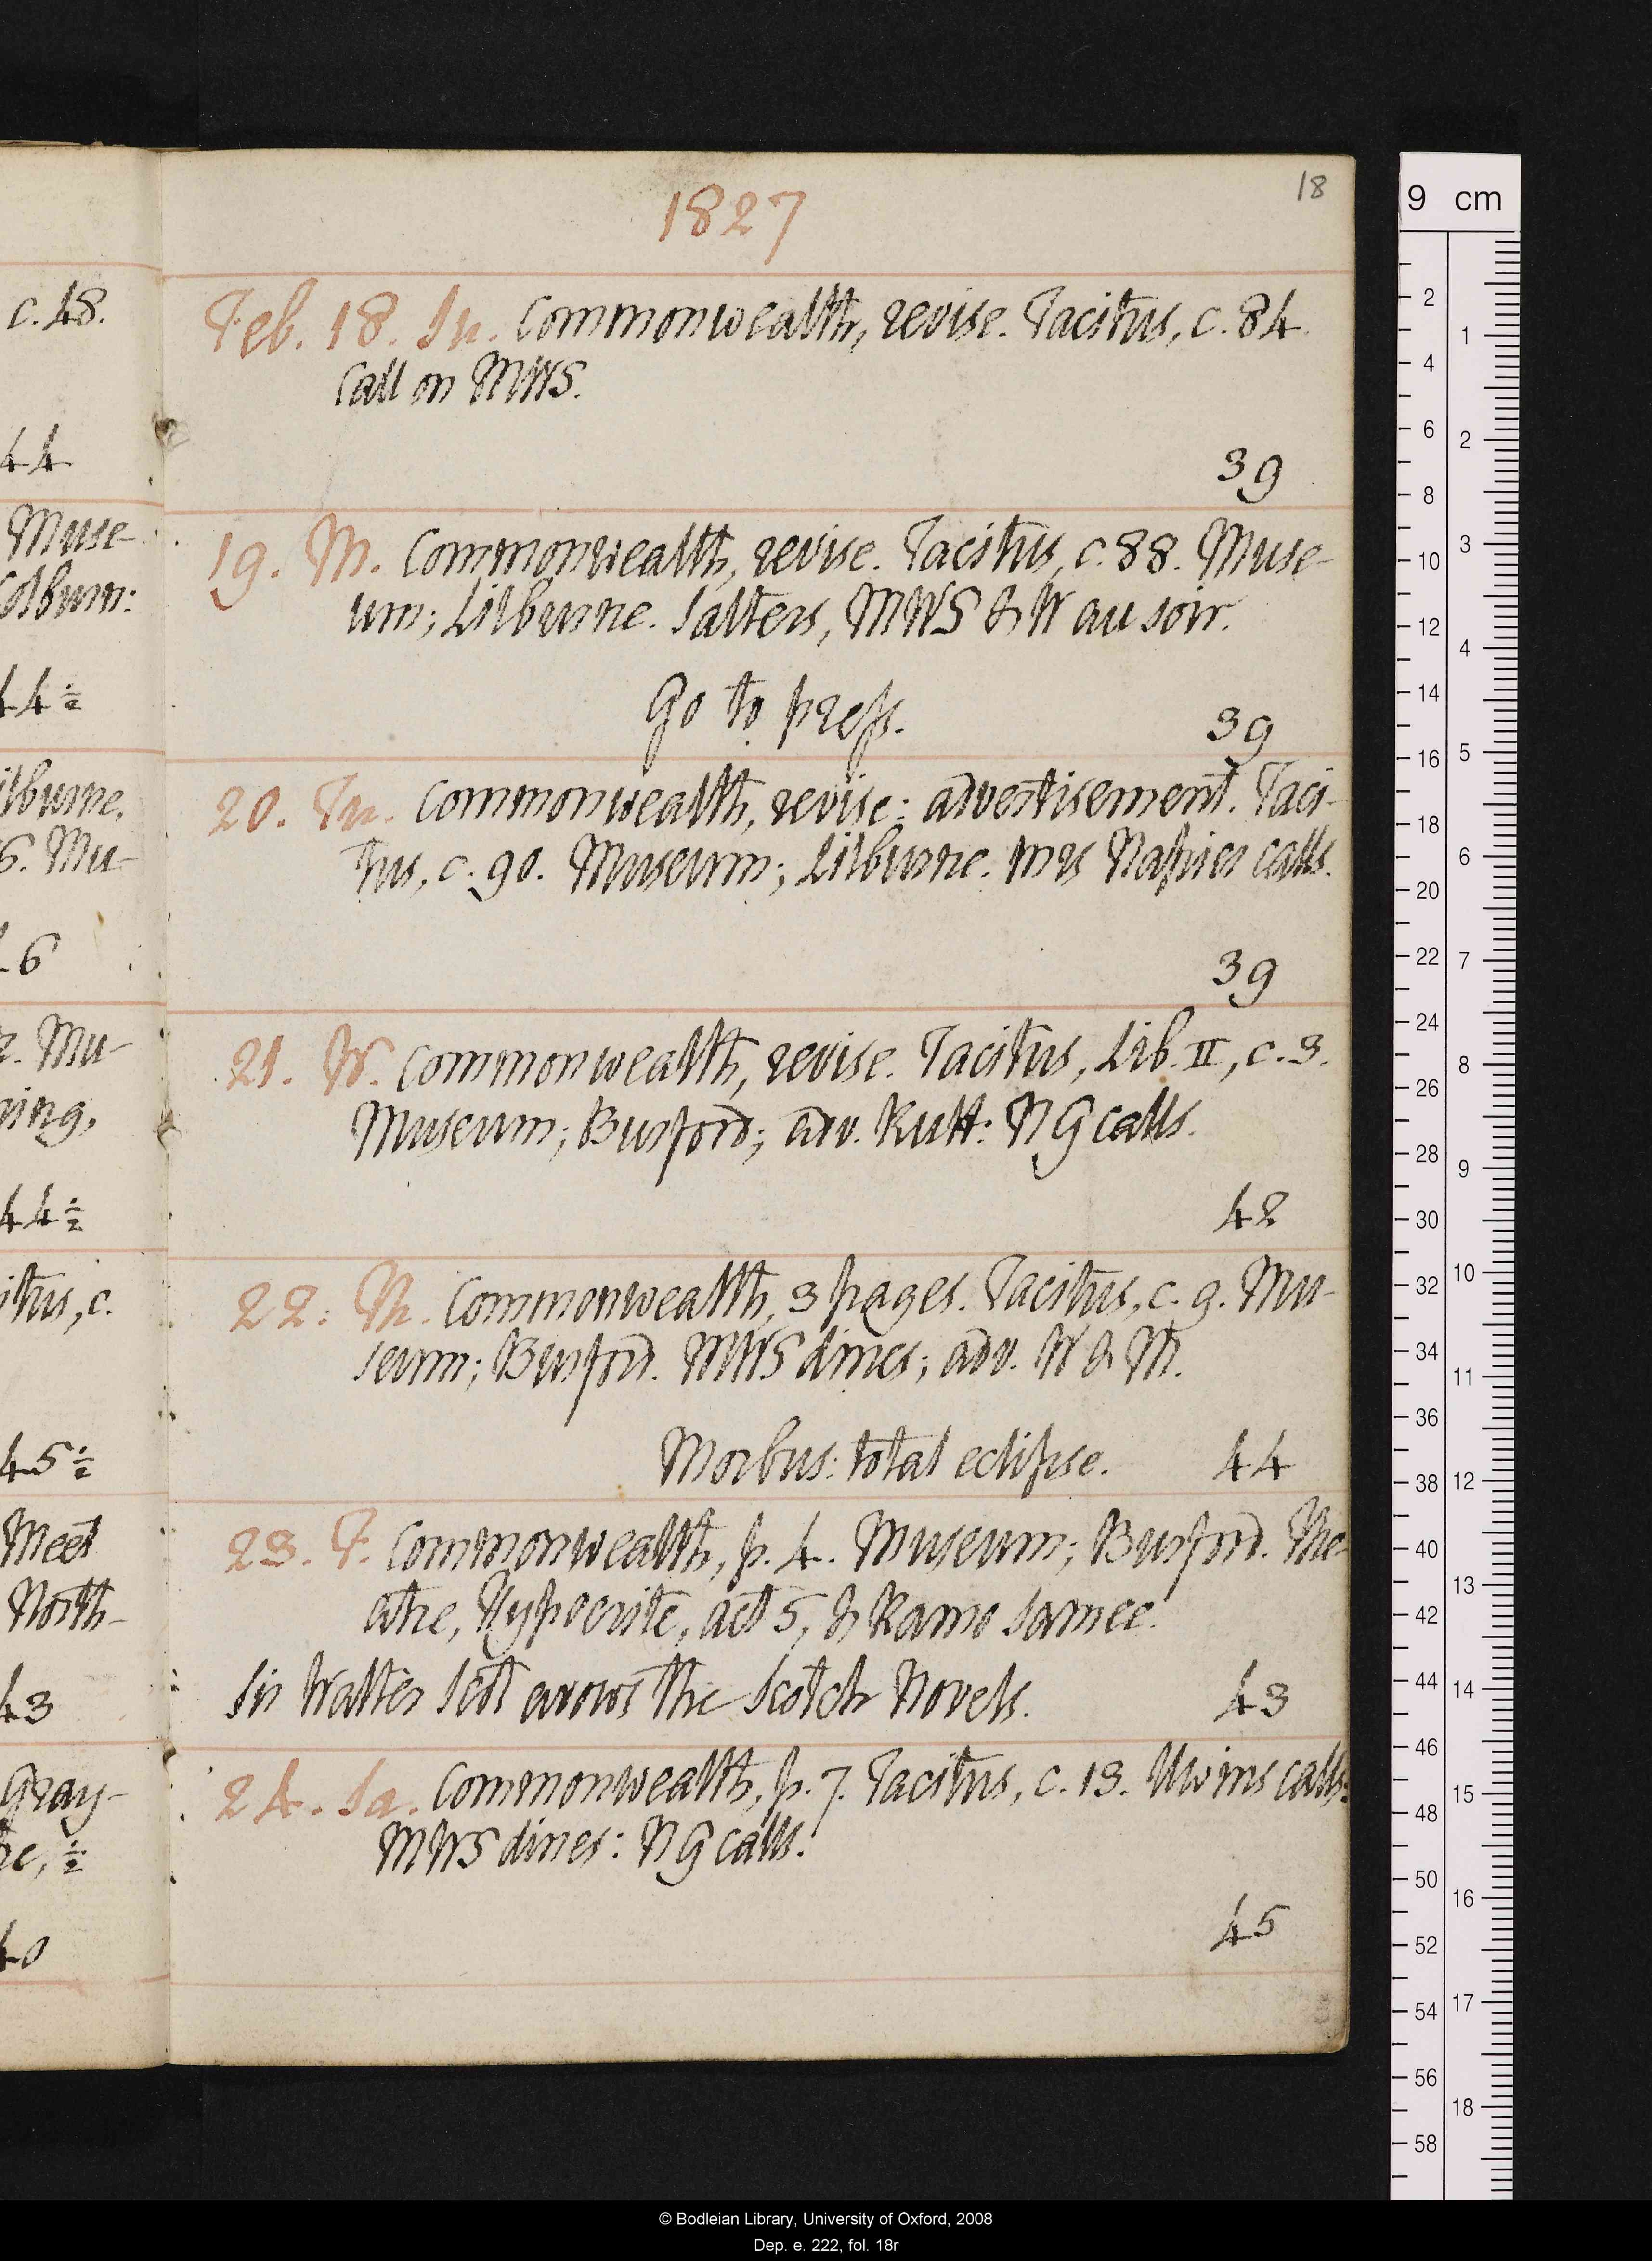 18
1827
c. 48.
44
Muse-
Colburn:
44½
ilburne,
6. Mu-
46
2. Mu-
ning,
44½
itus, c.
45½
Meet
North-
43
Gray-
re, ½
40
Feb. 18. Su. Commonwealth, revise. Tacitus, c. 84.
Call on MWS.
39
19. M. Commonwealth, revise. Tacitus, c. 88. Muse-
um; Lilburne. Salters, MWS & W au soir.
Go to press.
39
20. Tu. Commonwealth, revise: advertisement. Taci-
tus, c. 90. Museum; Lilburne. Mrs Napier calls.
39
21. W. Commonwealth, revise. Tacitus, Lib. II, c. 3.
Museum; Burford; adv. Rutt: N G calls.
42
22. Th. Commonwealth, 3 pages. Tacitus, c. 9. Mu-
seum; Burford. MWS dines; adv. W & M.
Morbus: total eclipse.
44
23. F. Commonwealth, p. 4. Museum; Burford. The-
atre, Hypocrite, act 5, & Ramo Samee.
Sir Walter Scot avows the Scotch Novels.
43
24. Sa. Commonwealth, p. 7. Tacitus, c. 13. Uwins calls:
MWS dines: N G calls.
45
9 cm
2
4
6
8
10
12
14
16
18
20
22
24
26
28
30
32
34
36
38
40
42
44
46
48
50
52
54
56
58
1
2
3
4
5
6
7
8
9
10
11
12
13
14
15
16
17
18
© Bodleian Library, University of Oxford, 2008
Dep. e. 222, fol. 18r